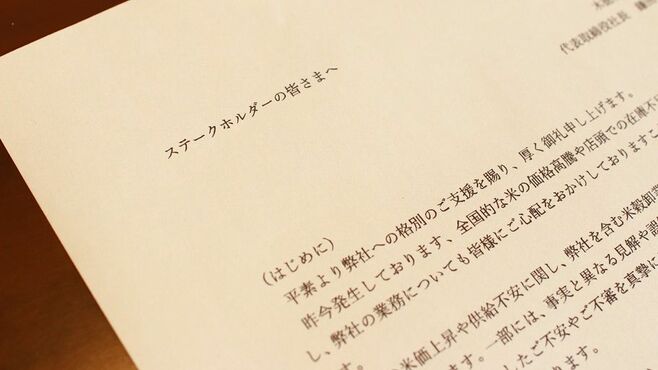 代表取締役社長
ステークホルダーの皆さまへ
(はじめに)
平素より弊社への格別のご支援を賜り、厚く御礼申し上げます。
昨今発生しております、全国的な米の価格高騰や店頭での在庫不足
し、弊社の業務についても皆様にご心配をおかけしておりますこ
す。
米価上昇や供給不安に関し、弊社を含む米穀卸業
ます。一部には、事実と異なる見解や
したご不安やご不審を真摯に
ります。